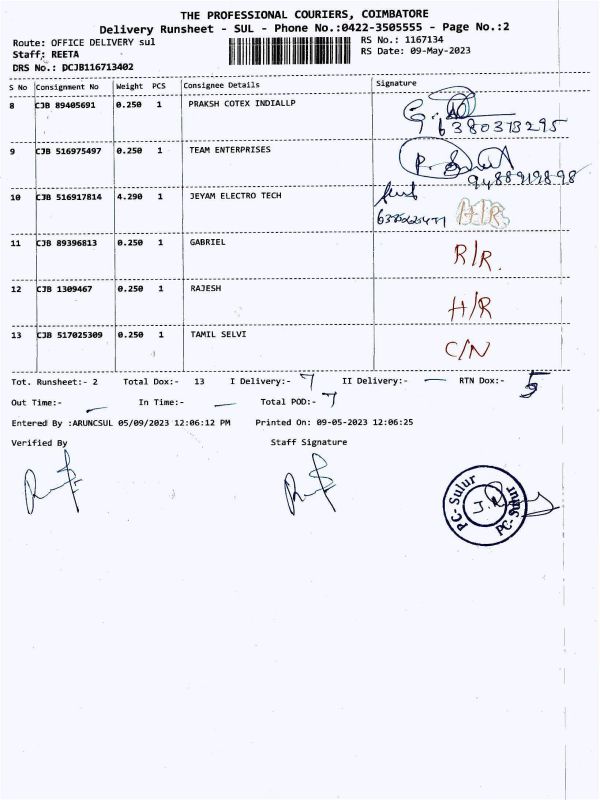 THE PROFESSIONAL COURIERS, COIMBATORE
Delivery Runsheet - SUL - Phone No.:0422-3505555 - Page No.:2
Route: OFFICE DELIVERY sul RS No.: 1167134
Staff: REETA RS Date: 09-May-2023
DRS No.: DCJB116713402
S No Consignment No Weight PCS Consignee Details Signature
8 CJB 89405691 0.250 1 PRAKSH COTEX INDIALLP
6380373295
9 CJB 516975497 0.250 1 TEAM ENTERPRISES
9488919898
10 CJB 516917814 4.290 1 JEYAM ELECTRO TECH H/R
11 CJB 89396813 0.250 1 GABRIEL R/R.
12 CJB 1309467 0.250 1 RAJESH H/R
13 CJB 517025309 0.250 1 TAMIL SELVI C/N
Tot. Runsheet:- 2 Total Dox:- 13 I Delivery:- 7 II Delivery:- — RTN Dox:- 5
Out Time:- — In Time:- — Total POD:- 7
Entered By :ARUNCSUL 05/09/2023 12:06:12 PM Printed On: 09-05-2023 12:06:25
Verified By Staff Signature
PC-Sulur PC-Sulur